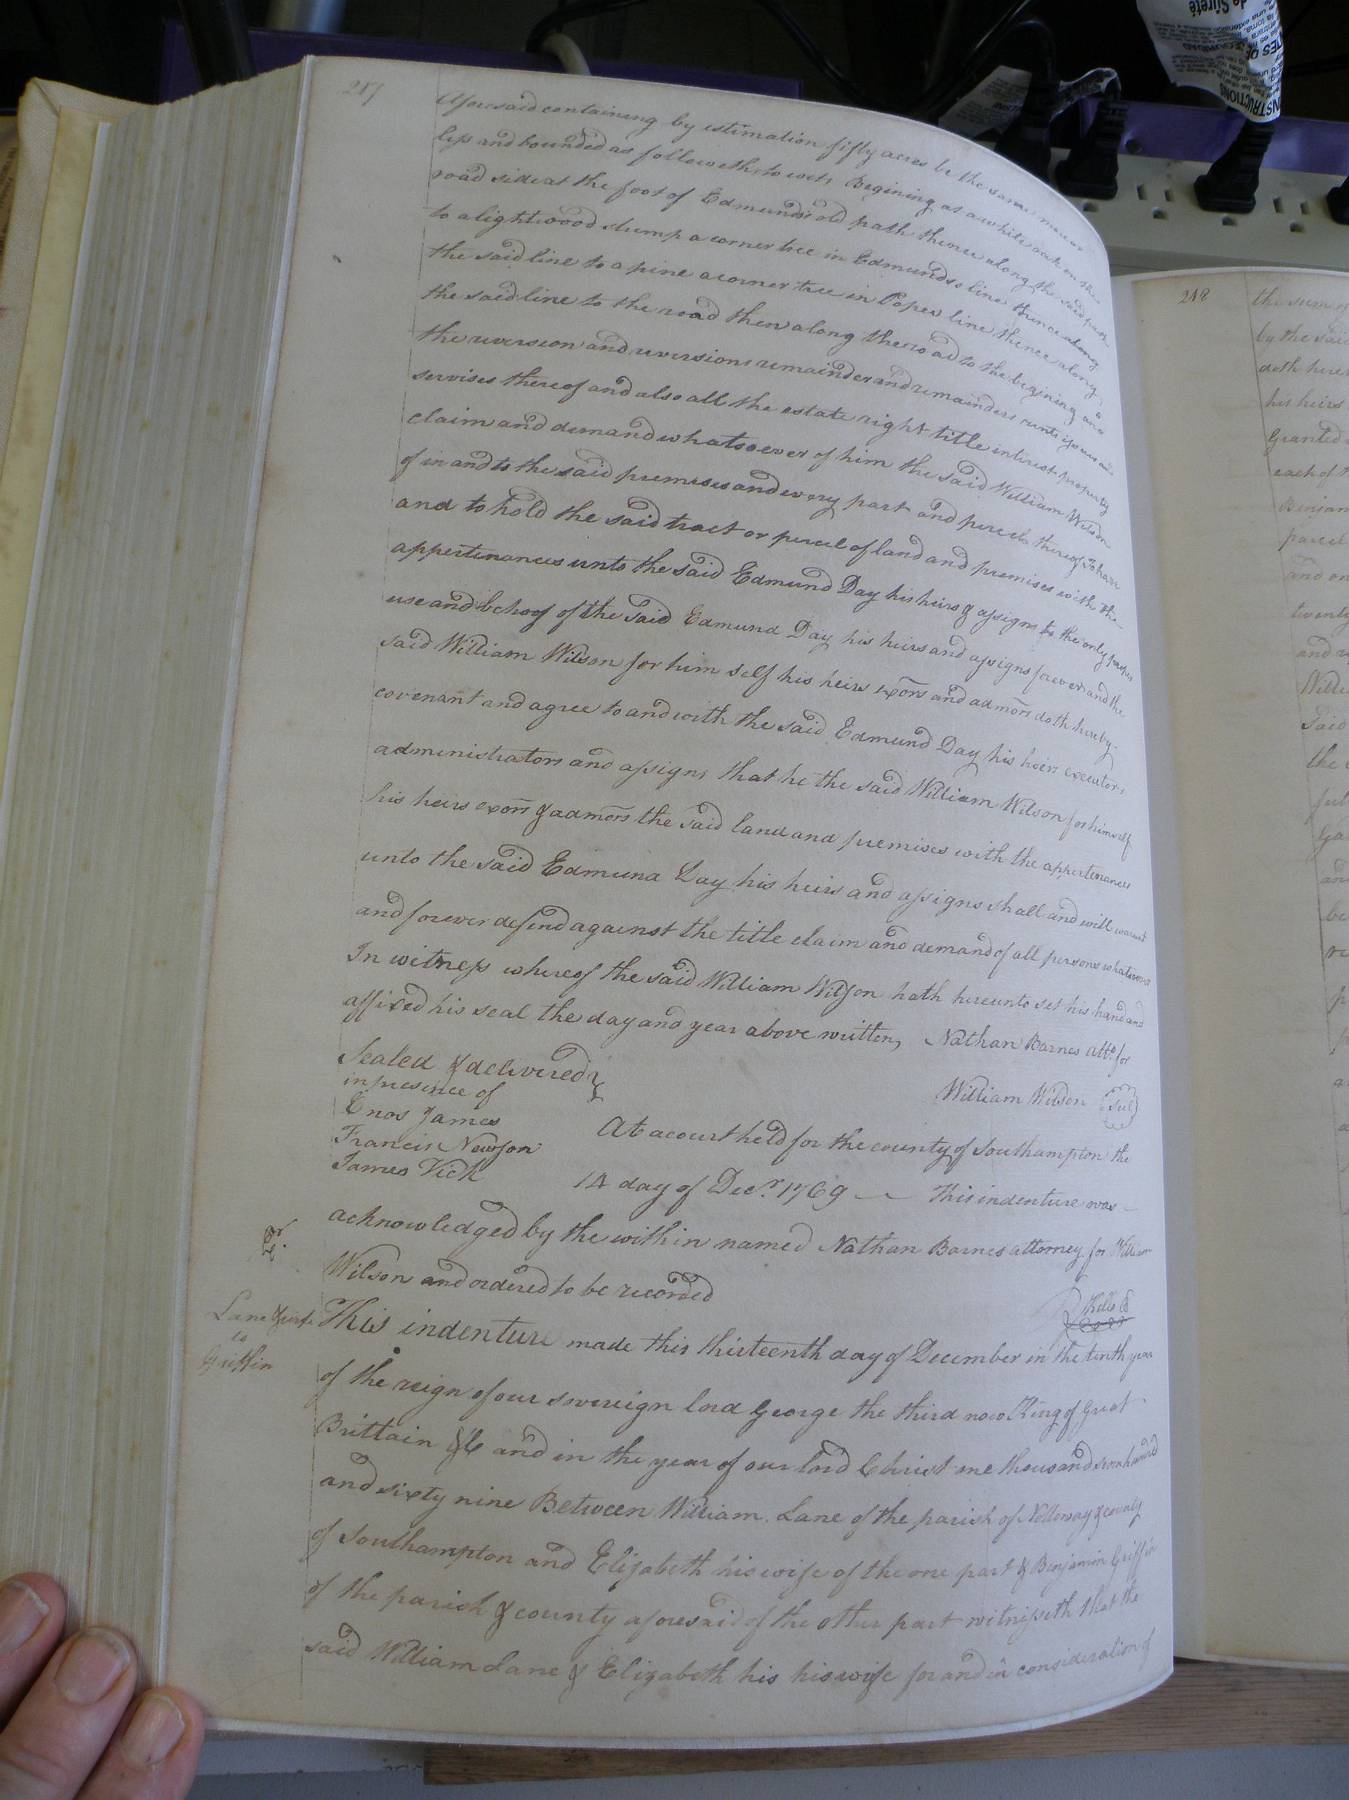 217
Aforesaid containing by estimation fifty acres be the same more or
less and bounded as followeth, to wit, Begining at a white oak on the
road side at the foot of Edmunds's old path thence along the said path
to a lightwood stump a corner tree in Edmunds's line thence along
the said line to a pine a corner tree in Popes line thence along
the said line to the road then along the road to the begining and
the reversion and reversions remainder and remainders rents issues and
servises thereof and also all the estate right title interest property
claim and demand whatsoever of him the said William Wilson
of in and to the said premises and every part and percel thereof To have
and to hold the said tract or percel of land and premises with the
appertenances unto the said Edmund Day his heirs & assigns to the only proper
use and behoof of the said Edmund Day his heirs and assigns forever and the
said William Wilson for him self his heirs exors and admors doth hereby
covenant and agree to and with the said Edmund Day his heirs executors
administrators and assigns that he the said William Wilson for himself
his heirs exors & admors the said land and premises with the appertenances
unto the said Edmund Day his heirs and assigns shall and will warrant
and forever defend against the title claim and demand of all persons whatsoever
In witness whereof the said William Wilson hath hereunto set his hand and
affixed his seal the day and year above written, Nathan Barnes atto. for
Sealed & delivered
William Wilson Seal
in presence of
Enos James
At a court held for the county of Southampton the
Francis Newsom
James Vick
14 day of Decr. 1769 — This indenture was
acknowledged by the within named Nathan Barnes attorney for William
Wilson and ordered to be recorded
Lane & wife
to
Griffin
This indenture made this thirteenth day of December in the tenth year
of the reign of our sovereign lord George the third now King of Great
Brittain &c and in the year of our lord Christ one thousand seven hundred
and sixty nine Between William Lane of the parish of Nottoway & county
of Southampton and Elizabeth his wife of the one part & Benjamin Griffin
of the parish & county aforesaid of the other part witnesseth that the
said William Lane & Elizabeth his his wife for and in consideration of
218
the sum
by the said
doth
his heirs
Granted
each of
parcel
and
twenty
and
said
the